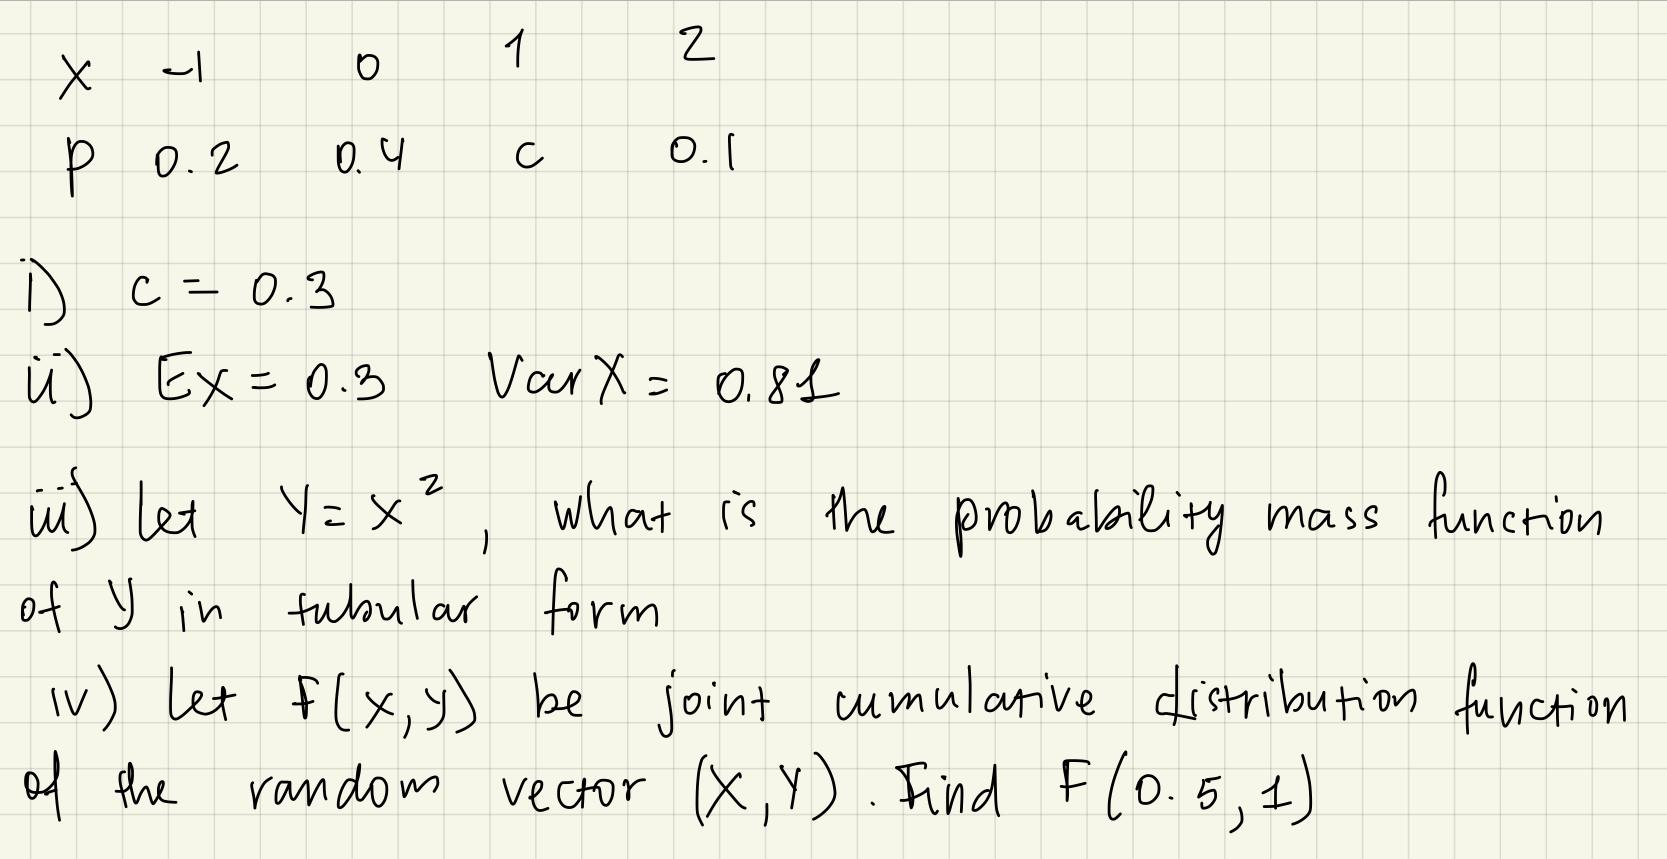 X -1 0 1 2
p 0.2 0.4 c 0.1
i) c = 0.3
ii) EX = 0.3 Var X = 0.81
iii) let Y = X², what is the probability mass function
of Y in tubular form
iv) let F(x,y) be joint cumulative distribution function
of the random vector (X,Y). Find F(0.5,1)